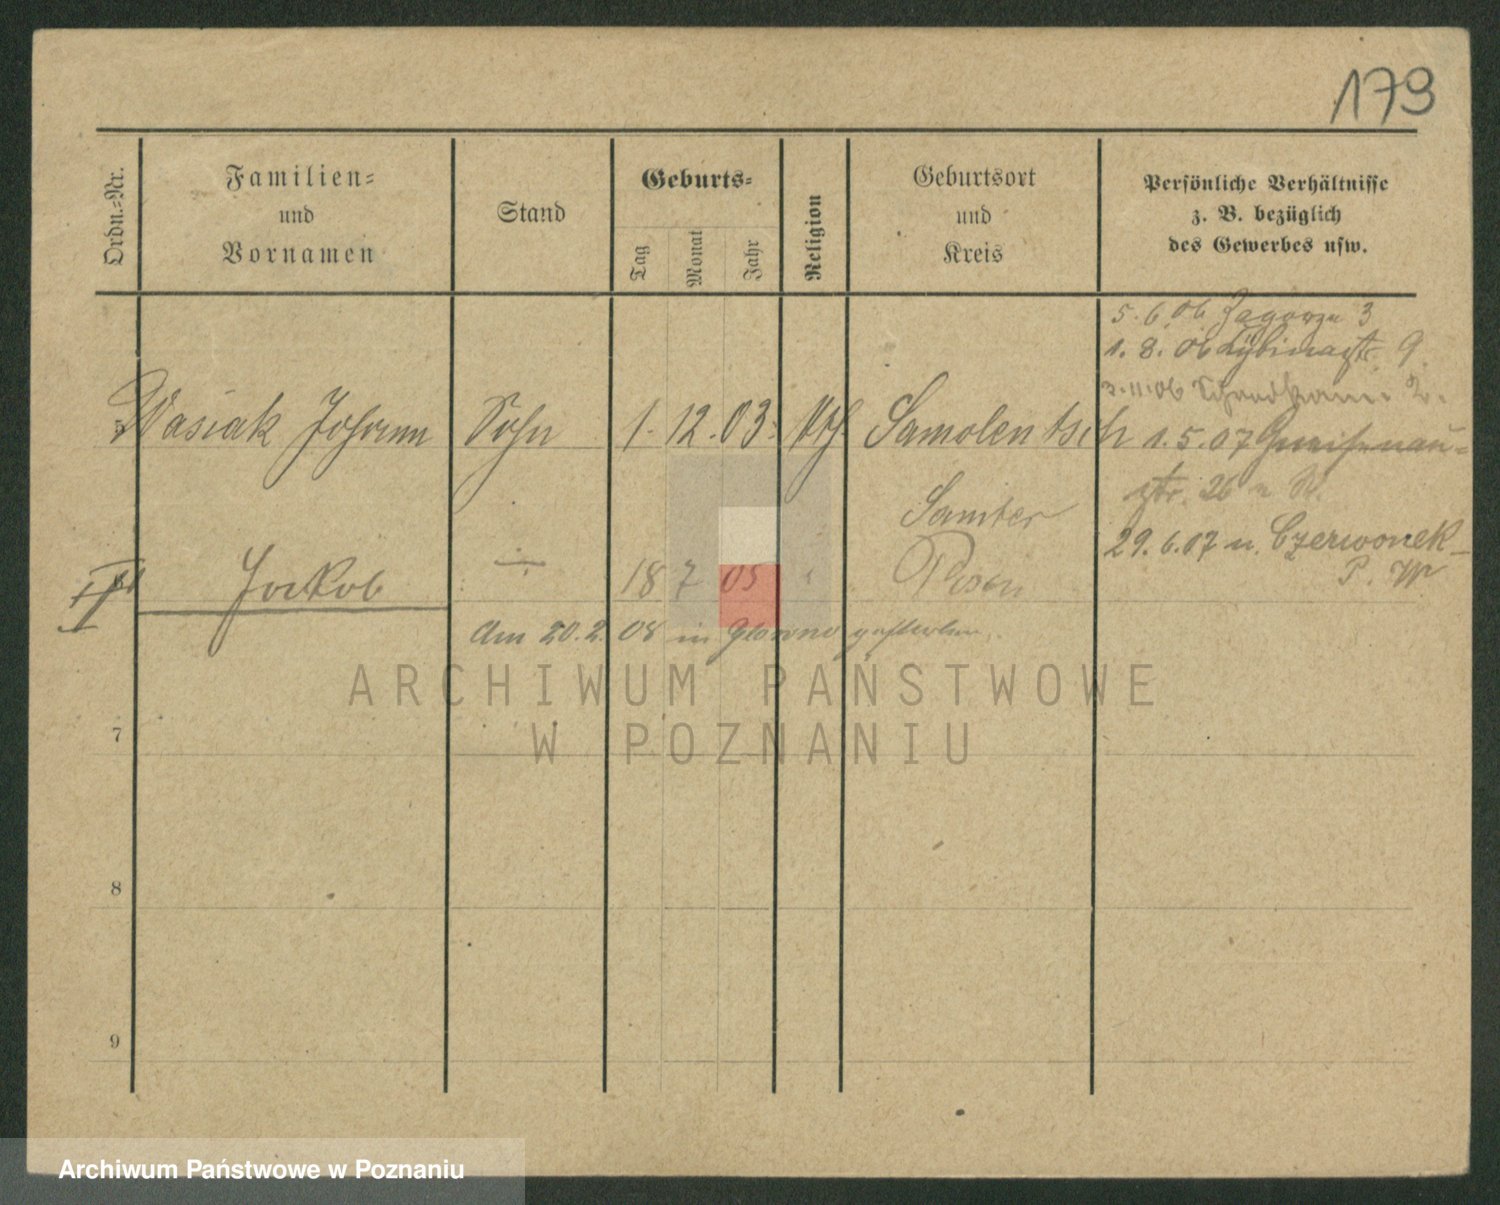 179
Ordn.-Nr.
Familien-
und
Vornamen
Stand
Geburts-
Tag
Monat
Jahr
Religion
Geburtsort
und
Kreis
Persönliche Verhältnisse
z. B. bezüglich
des Gewerbes usw.
5. 6. 06 Zagorze 3
1. 8. 06 9
3. 11. 06 2.
5 Wasiak Johann Sohn 1. 12. 03. kth. Samolentsch 1. 5. 07 Gneisenau-
str. 26 n
Samter
29. 6. 07 n. Czerwonek
P. W
Jakob 18 7 05 Posen
Am 20. 2. 08 in Glowno gestorben.
ARCHIWUM PAŃSTWOWE
W POZNANIU
7
8
9
Archiwum Państwowe w Poznaniu